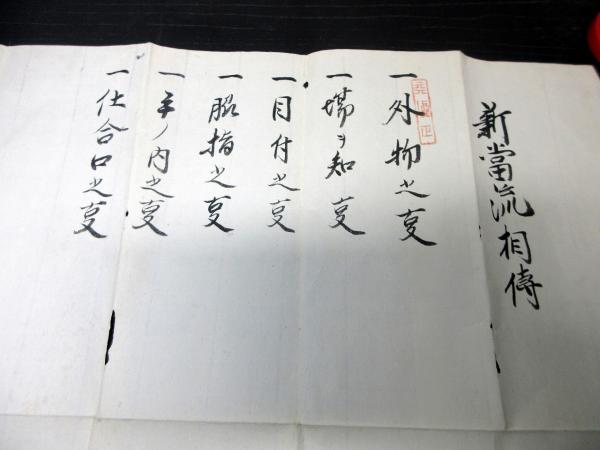 新當流相傳
一外物之叓
一場ヲ知叓
一目付之叓
一脇指之叓
一手ノ内之叓
一仕合口之叓